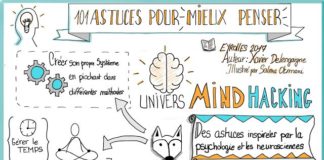 101 ASTUCES POUR MIEUX PENSER
EYROLLES 2017
Auteur: Xavier Delengaigne
Illustré par Salima Otmani
Créer son propre Système
en piochant dans
différentes méthodes
UNIVERS MIND HACKING
Gérer le
TEMPS
Des astuces inspirées par la
psychologie et les neurosciences